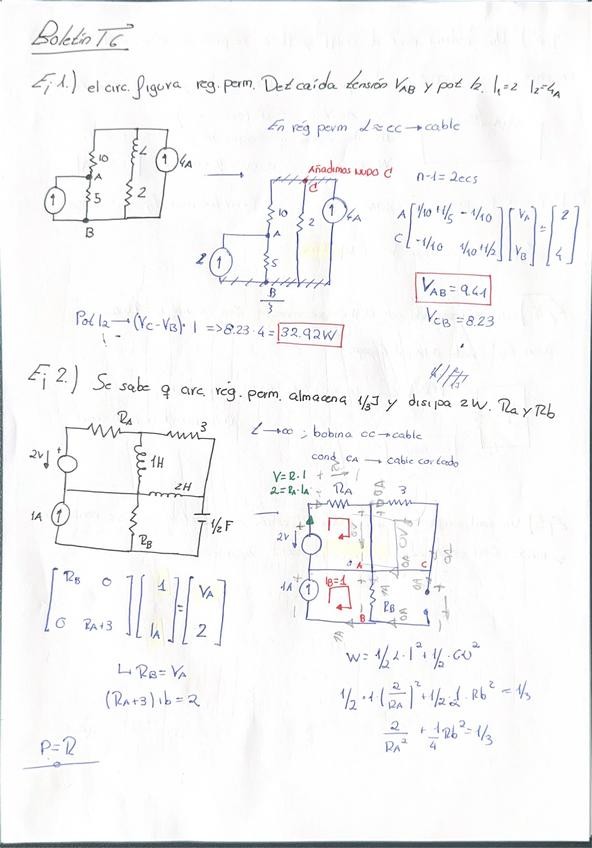 Boletín T6
Ej 1.) el circ. figura reg. perm. Det caída tensión VAB y pot I2. I1=2 I2=4A
En rég perm L≈cc→cable
10
L
4A
A
5
2
B
Añadimos NUDO C
C
10
2
4A
A
2
5
B
n-1=2ecs
A [1/10+1/5 -1/10] [VA] = [2]
C [-1/10 1/10+1/2] [VB] [4]
VAB = 9.41
VCB = 8.23
Pot I2 → (VC-VB)·I => 8.23·4 = 32.92W
Ej 2.) Se sabe q circ. rég. perm. almacena 1/3J y disipa 2W. Ra y Rb
RA
3
2V
1H
2H
1A
RB
1/2F
L→∞ ; bobina cc→cable
cond. CA → cable cortado
V=R·I
2=RA·IA
RA
3
2V
A
C
1A
IB=1
RB
B
[RB 0] [1] = [VA]
[0 RA+3] [IA] [2]
↳ RB=VA
(RA+3)ib=2
W = 1/2 L·I² + 1/2·CV²
1/2·1·(2/RA)² + 1/2·1/2·Rb² = 1/3
2/RA² + 1/4Rb² = 1/3
P=R